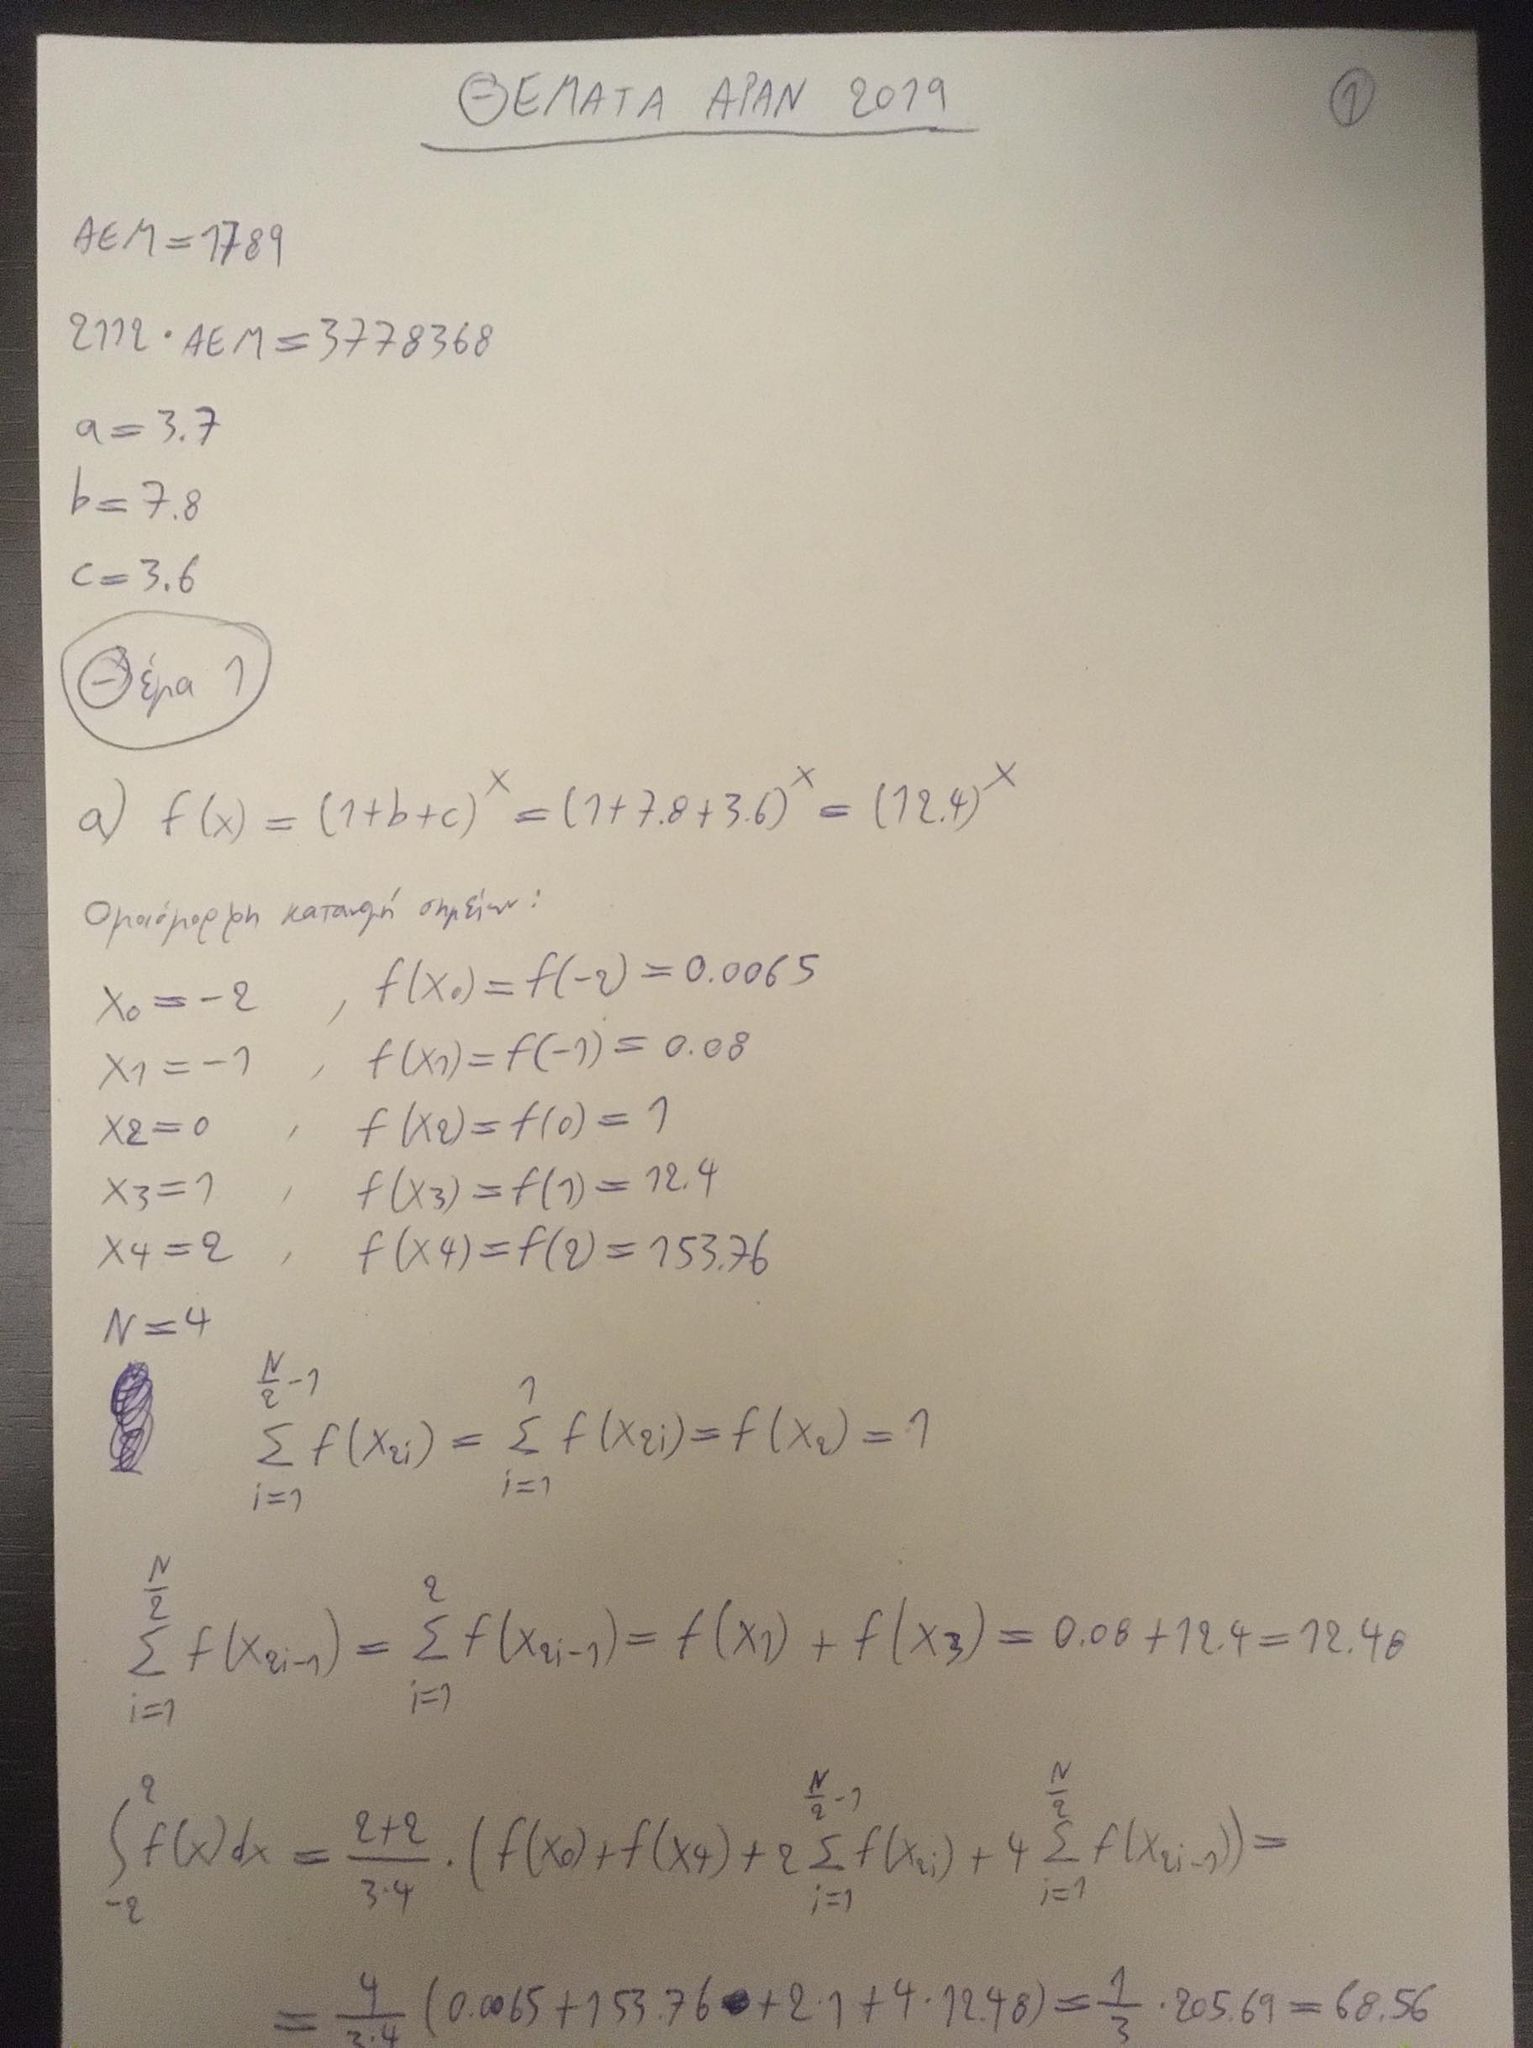 ΘΕΜΑΤΑ ΑΡΑΝ 2019
1
ΑΕΜ=1789
2112·ΑΕΜ=3778368
a=3.7
b=7.8
c=3.6
Θέμα 1
a) f(x) = (1+b+c)^x = (1+7.8+3.6)^x = (12.4)^x
Ομοιόμορφη κατανομή σημείων:
x₀=-2 , f(x₀)=f(-2)=0.0065
x₁=-1 , f(x₁)=f(-1)=0.08
x₂=0 , f(x₂)=f(0)=1
x₃=1 , f(x₃)=f(1)=12.4
x₄=2 , f(x₄)=f(2)=153.76
N=4
∑_{i=1}^{N/2-1} f(x_{2i}) = ∑_{i=1}^{1} f(x_{2i}) = f(x₂) = 1
∑_{i=1}^{N/2} f(x_{2i-1}) = ∑_{i=1}^{2} f(x_{2i-1}) = f(x₁) + f(x₃) = 0.08+12.4=12.48
∫_{-2}^{2} f(x)dx = (2+2)/(3·4) · (f(x₀)+f(x₄)+2∑_{i=1}^{N/2-1} f(x_{2i}) + 4∑_{i=1}^{N/2} f(x_{2i-1})) =
= 4/(3·4) (0.0065+153.76+2·1+4·12.48) = 1/3 · 205.69 = 68.56